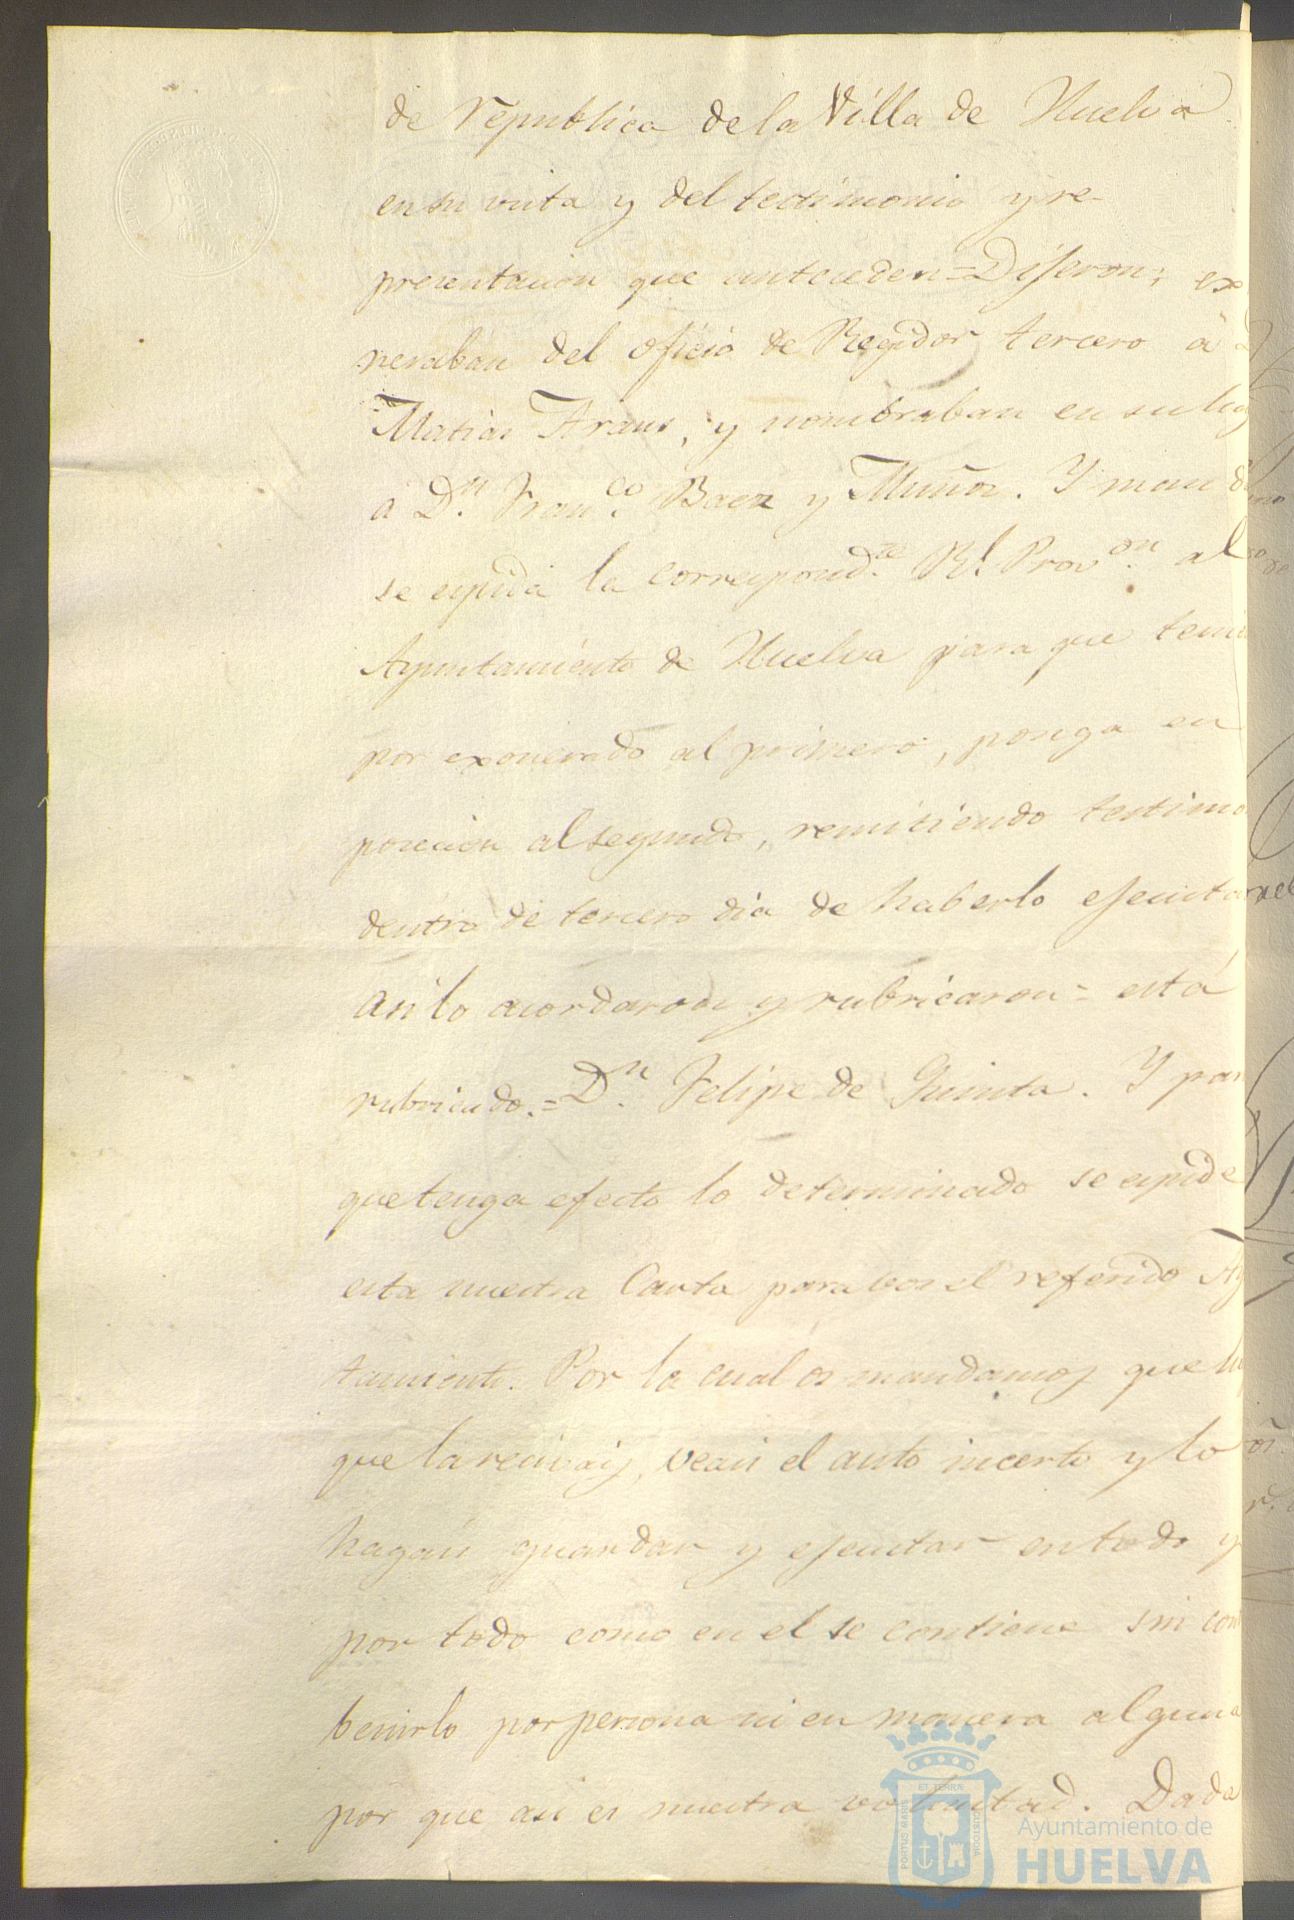 de republica de la Villa de Huelva
en su vista y del testimonio y re-
presentacion que anteceden = Dijeron; ex
neraban del oficio de Regidor tercero á D
Matias Arauz, y nombraban en su lug
a D.n Fran.co Baez y Muñoz. Y mand
se espida la correspond.te R.l Prov.on al
Ayuntamiento de Huelva para que teni
por exonerado al primero, ponga en
posecion al segundo, remitiendo testimo
dentro de tercero dia de haberlo ejecuta
asi lo acordaron y rubricaron = está
rubricado. = D.n Felipe de Quinta. Y par
que tenga efecto lo determinado se espide
esta nuestra Carta para vos el referido Ay
tamiento. Por la cual os mandamos que lu
que la recivais, veais el auto incerto y lo
hagais guardar y ejecutar en todo y
por todo como en el se contiene sin con
benirlo por persona ni en manera alguna
por que asi es nuestra voluntad. Dada
PORTUS MARIS ET TERRÆ CUSTODIA
Ayuntamiento de
HUELVA